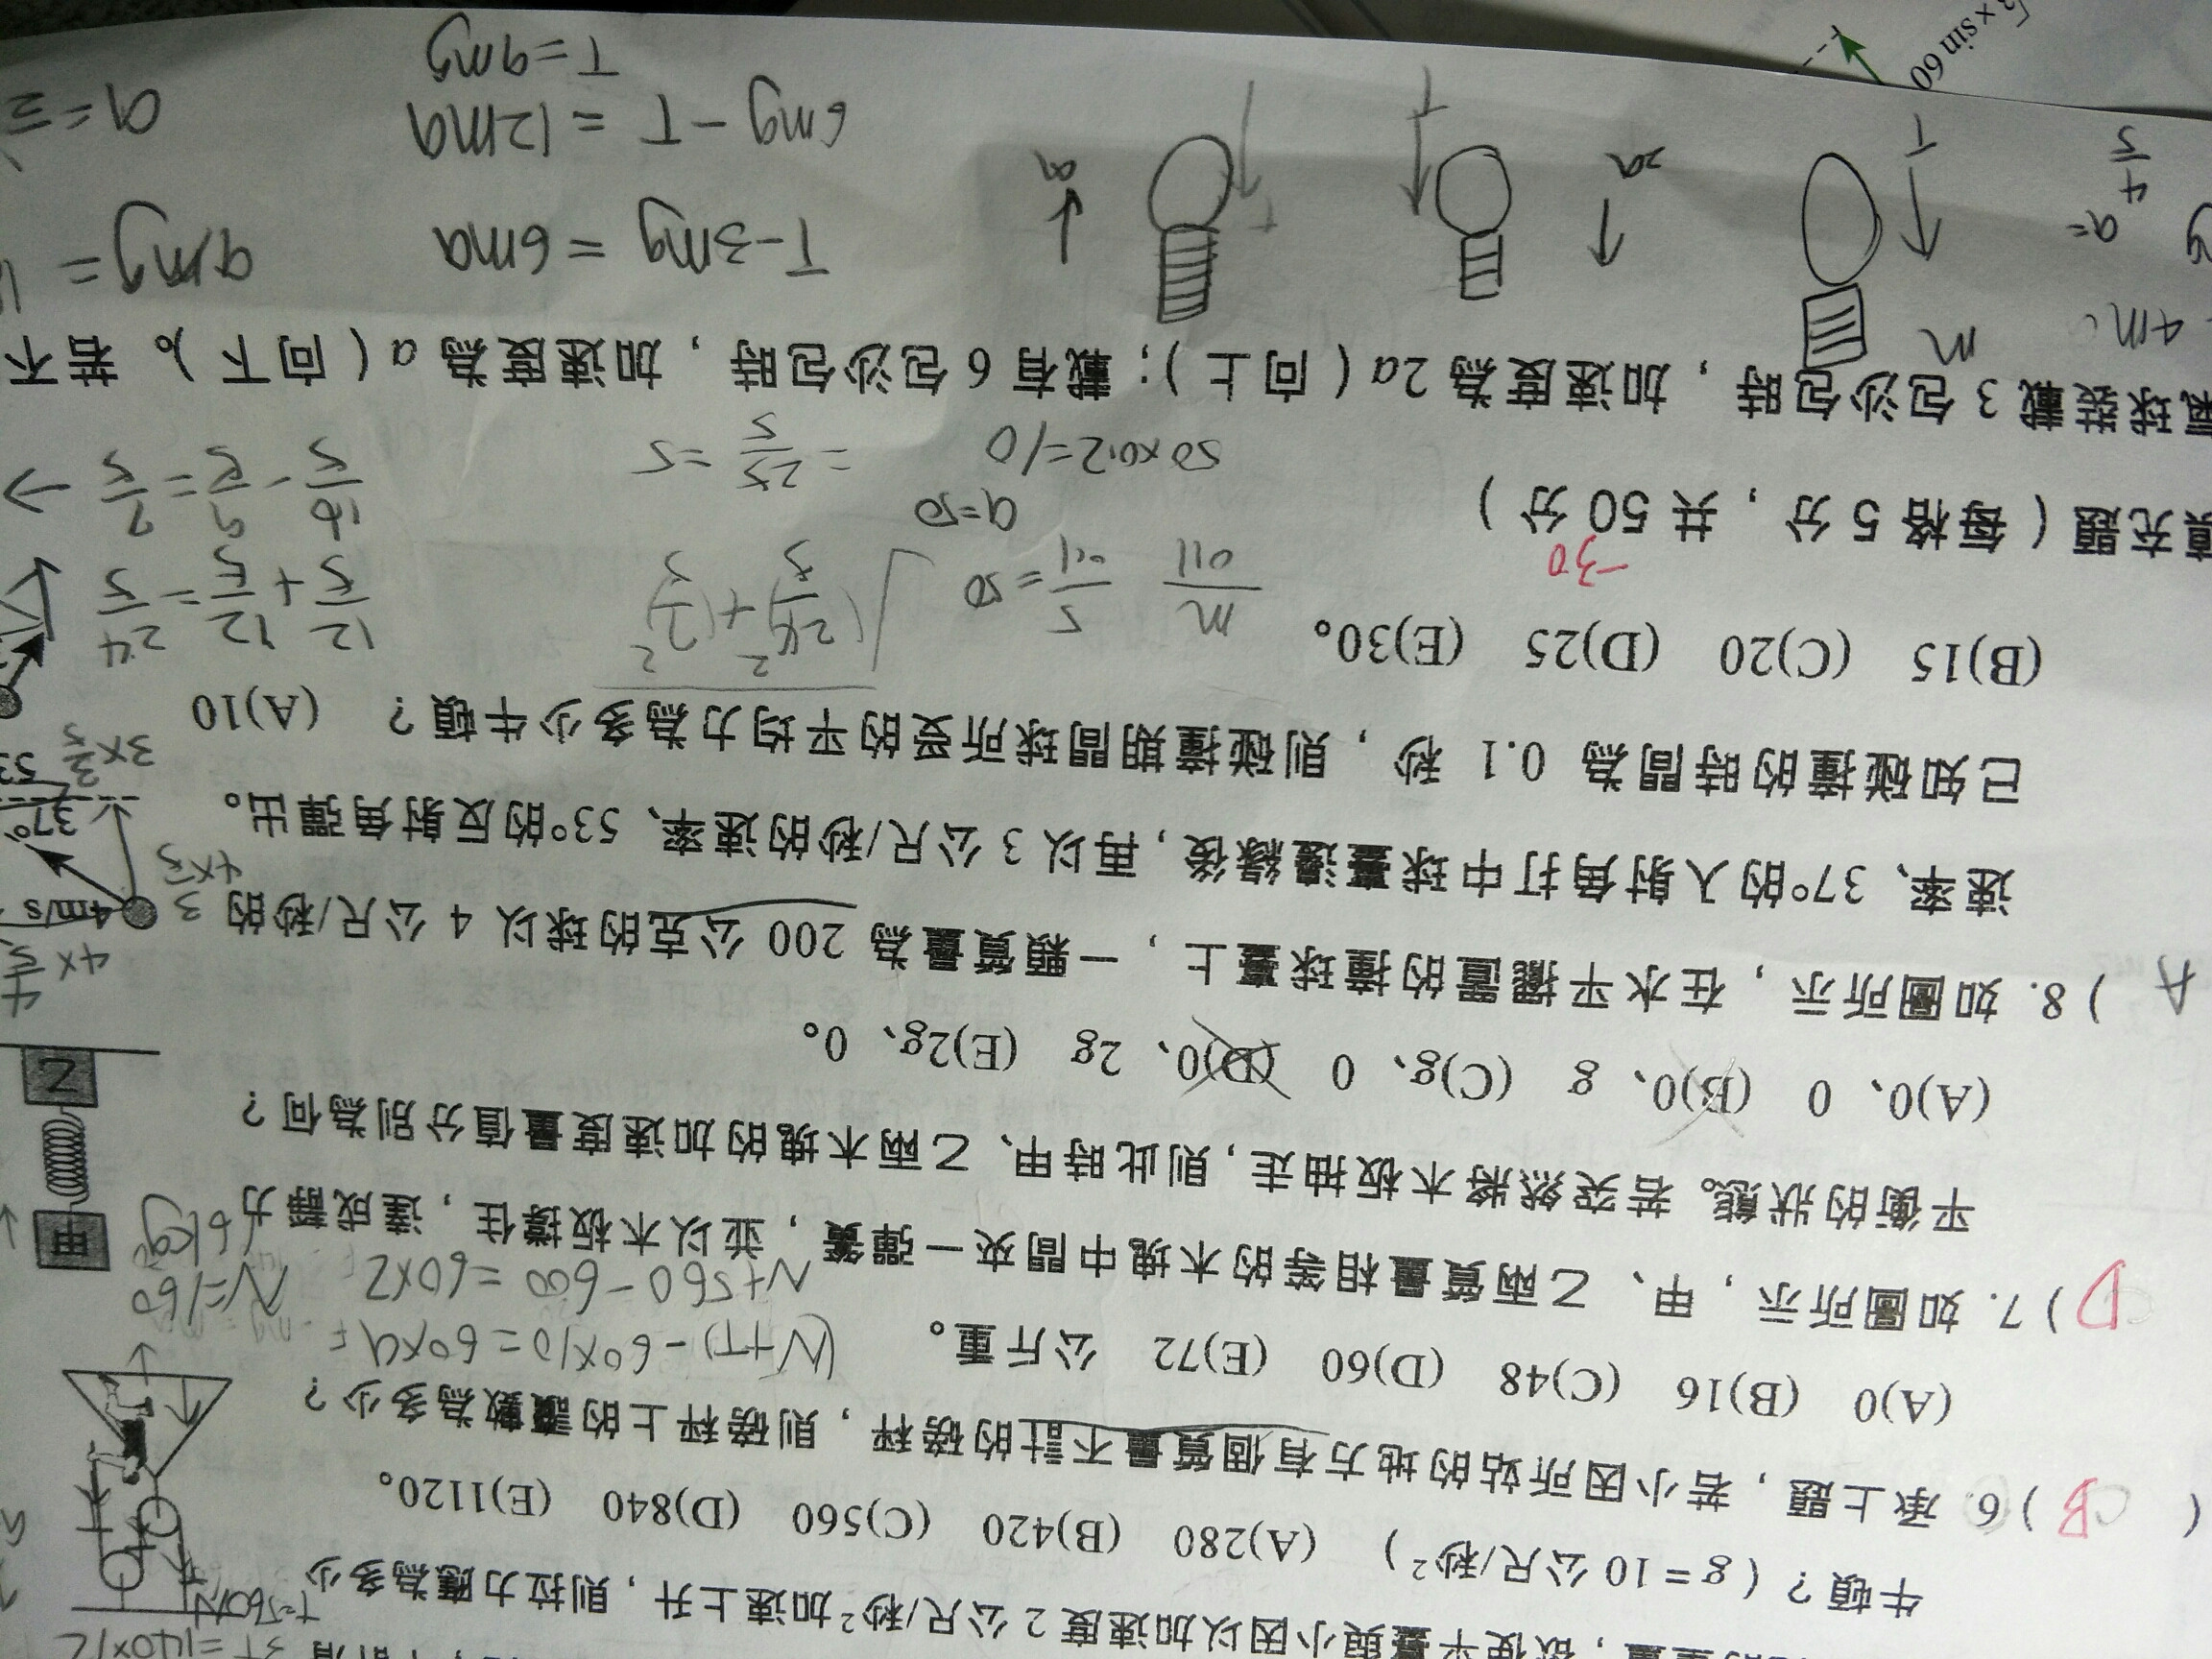 3T=140×12
的重量，欲使平臺與小因以加速度 2 公尺/秒²加速上升，則拉力應為多少
T=560N
牛頓？（g = 10 公尺/秒²） (A)280 (B)420 (C)560 (D)840 (E)1120。
( B ) 6. 承上題，若小因所站的地方有個質量不計的磅秤，則磅秤上的讀數為多少？
(A)0 (B)16 (C)48 (D)60 (E)72 公斤重。
(N+T)-60×10=60×a
N+560-600=60×2 N=160
16kg
D ) 7. 如圖所示，甲、乙兩質量相等的木塊中間夾一彈簧，並以木板撐住，達成靜力
平衡的狀態。若突然將木板抽走，則此時甲、乙兩木塊的加速度量值分別為何？
甲
乙
(A)0、0 (B)0、g (C)g、0 (D)0、2g (E)2g、0。
A ) 8. 如圖所示，在水平擺置的撞球臺上，一顆質量為 200 公克的球以 4 公尺/秒的
速率、37°的入射角打中球臺邊緣後，再以 3 公尺/秒的速率、53°的反射角彈出。
已知碰撞的時間為 0.1 秒，則碰撞期間球所受的平均力為多少牛頓？ (A)10
(B)15 (C)20 (D)25 (E)30。
4m/s
37°
53
4×4/5
4×3/5
3×3/5
5/0.1=50
a=50
50×0.2=10
√(24/5)²+(7/5)²
=25/5=5
12/5+12/5=24/5
16/5-9/5=7/5
-30
填充題（每格 5 分，共 50 分）
氣球裝載 3 包沙包時，加速度為 2a（向上）；載有 6 包沙包時，加速度為 a（向下）。若不
m
T
2a
T
a
T-3mg=6ma
6mg-T=12ma
T=4mg
a=
4/5
×sin 60